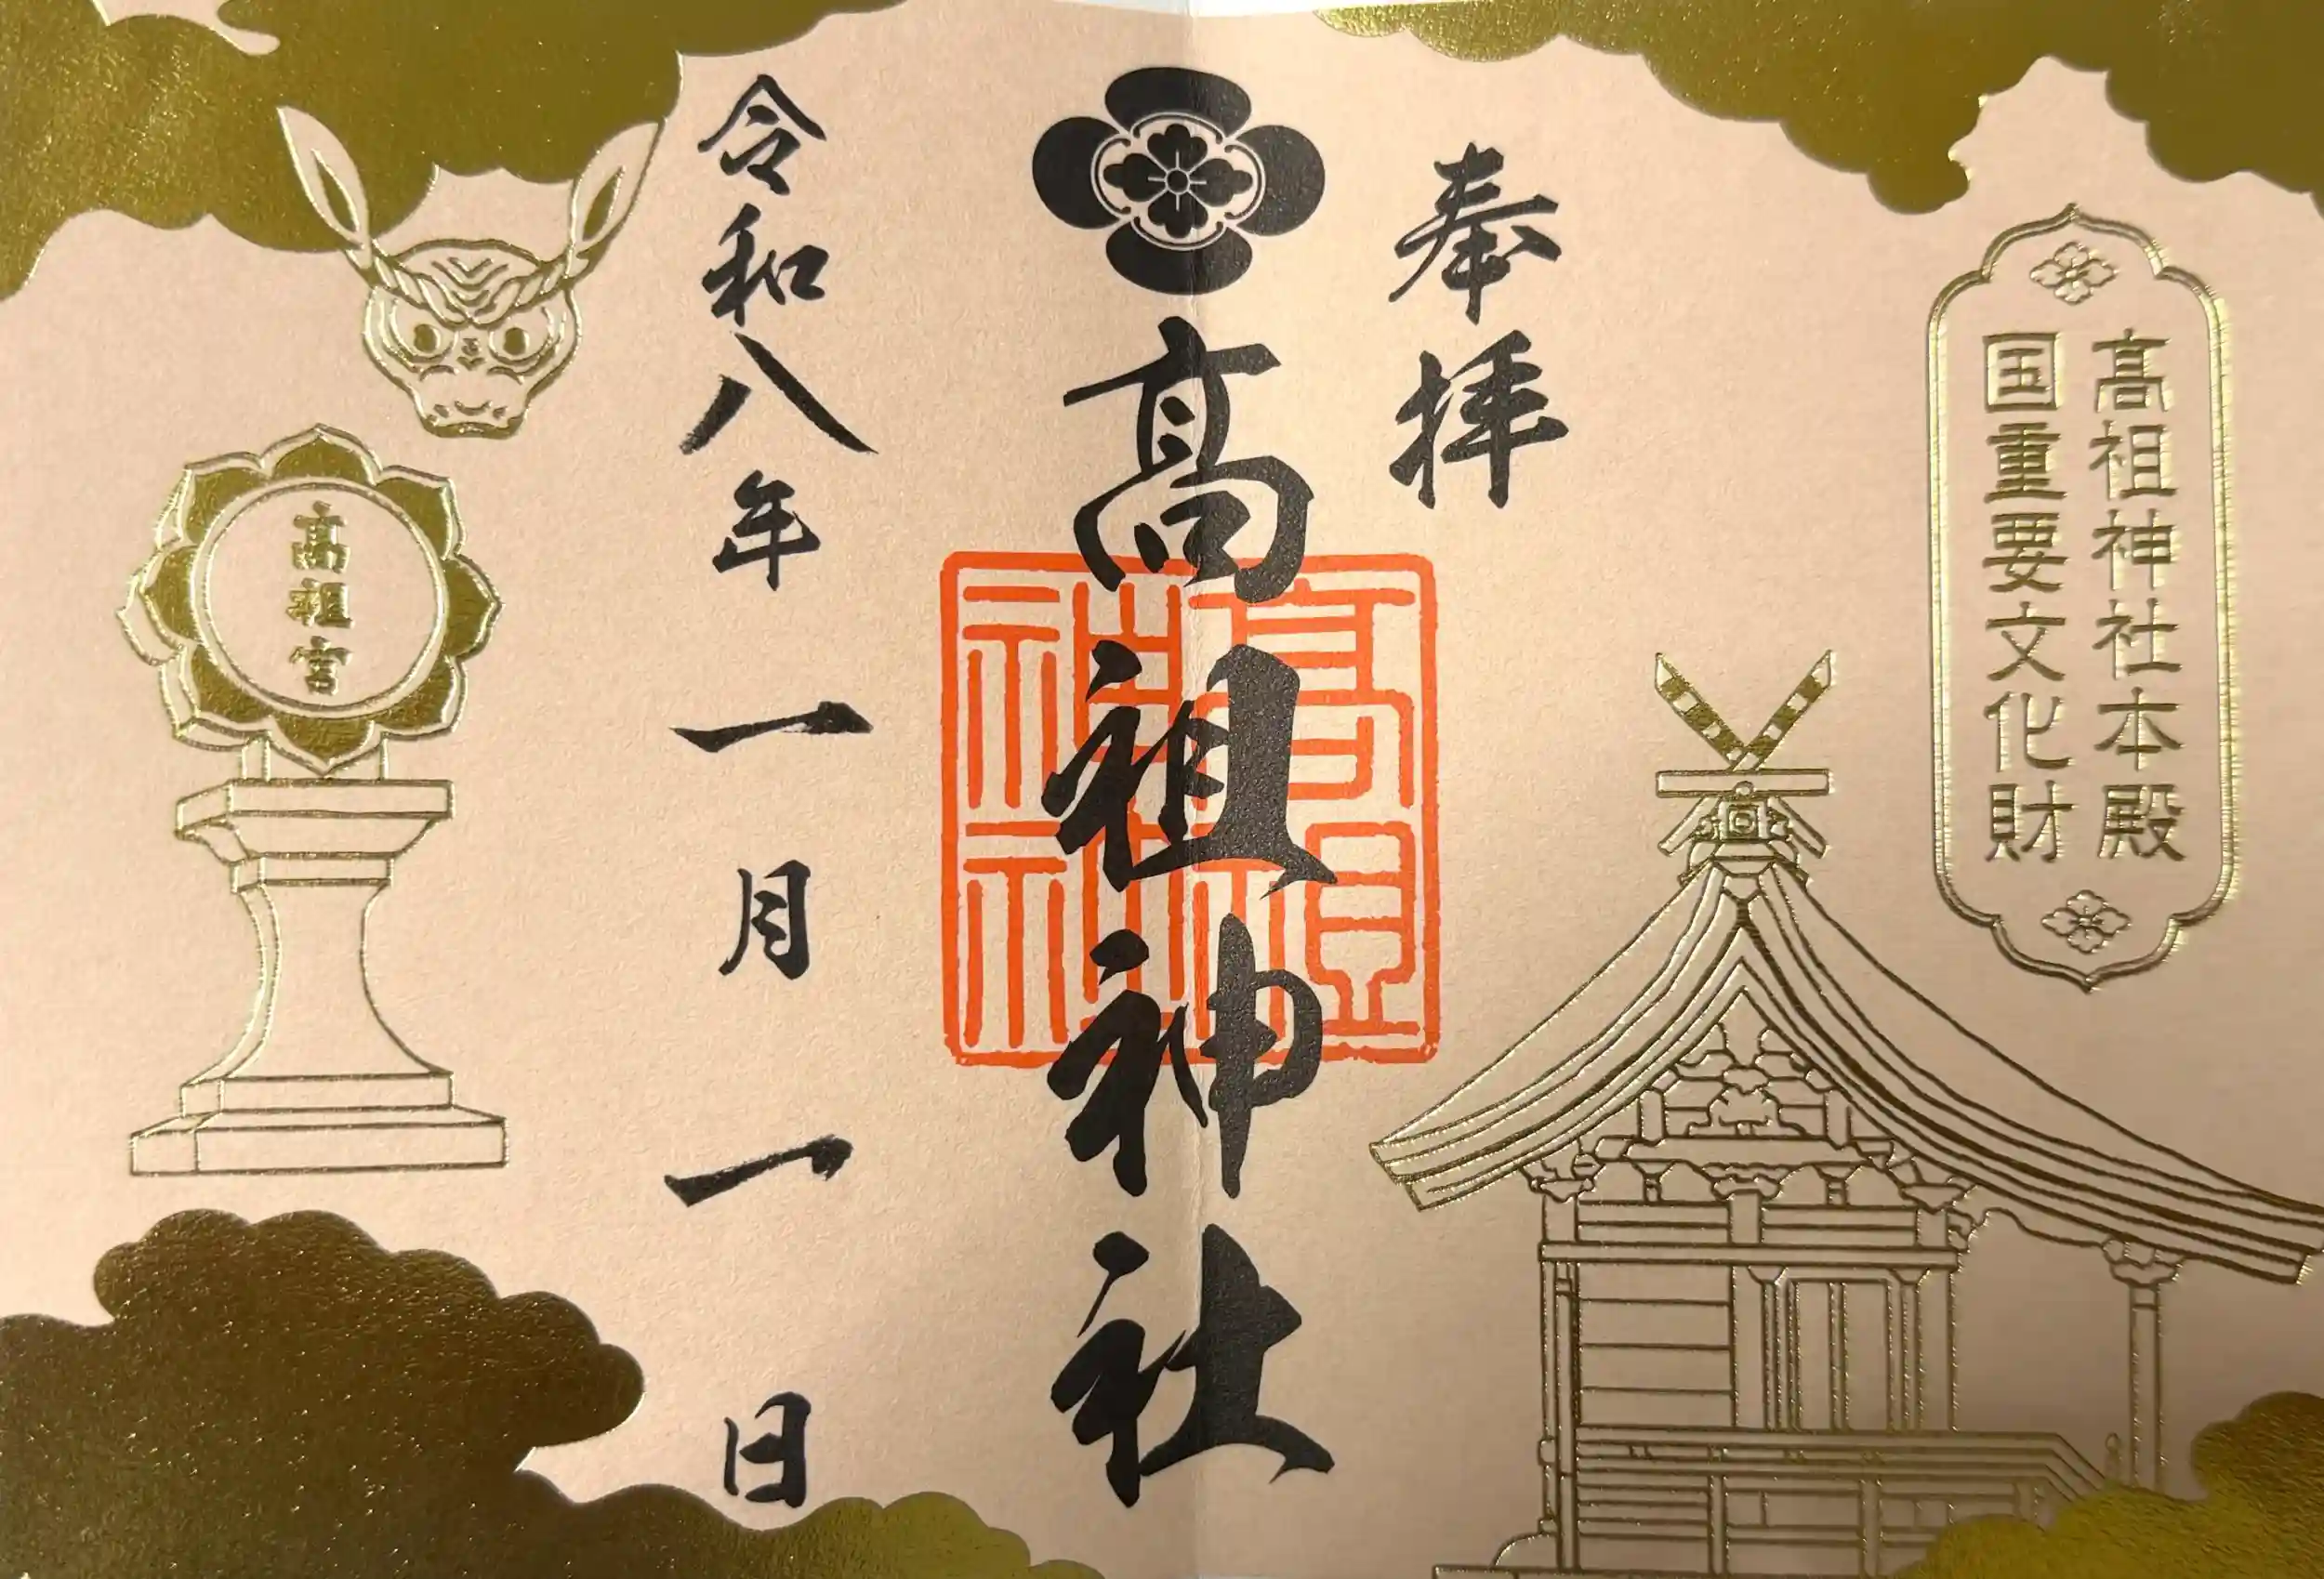 髙祖神社本殿
国重要文化財
奉拝
髙祖神社
髙祖
神社
令和八年一月一日
髙祖宮